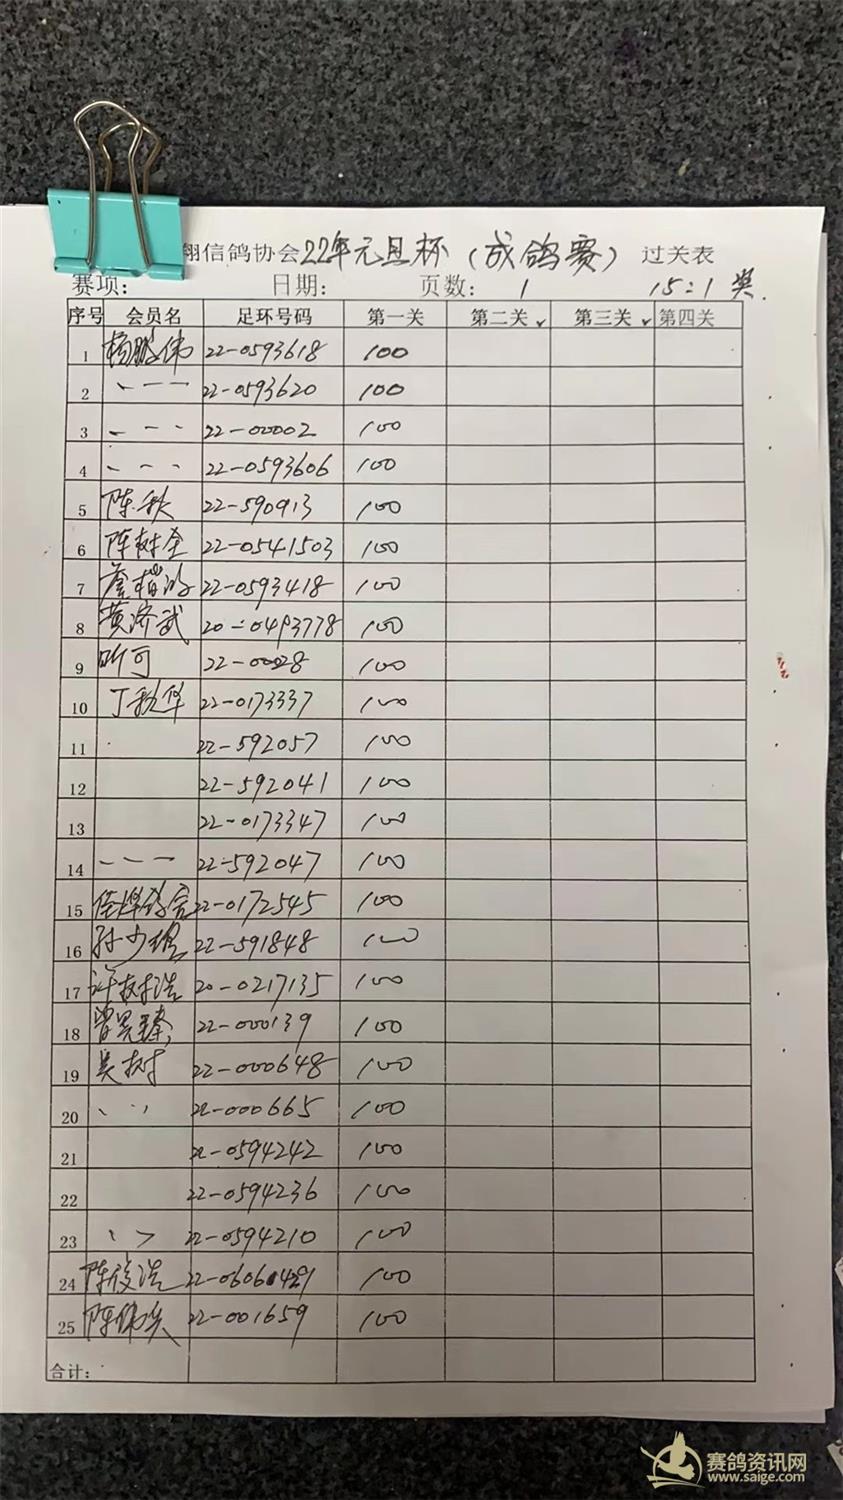 翔信鸽协会22年元旦杯（成鸽赛）过关表
赛项： 日期： 页数：1 15：1奖.
序号 会员名 足环号码 第一关 第二关 第三关 第四关
1 杨鹏伟 22-0593618 100
2 、一一 22-0593620 100
3 - - - 22-00002 100
4 - - - 22-0593606 100
5 陈秋 22-590913 100
6 陈树全 22-0541503 100
7 22-0593418 100
8 黄济武 20-0493778 100
9 昕可 22-00028 100
10 丁秋华 22-0173337 100
11 22-592057 100
12 22-592041 100
13 22-0173347 100
14 - - - 22-592047 100
15 22-0172545 100
16 孙少 22-591848 100
17 许树浩 20-0217135 100
18 曾 22-000139 100
19 吴树 22-000648 100
20 、、、 22-000665 100
21 22-0594242 100
22 22-0594236 100
23 、 > 22-0594210 100
24 陈俊浩 22-0606429 100
25 陈伟 22-001659 100
合计：
赛鸽资讯网
www.saige.com